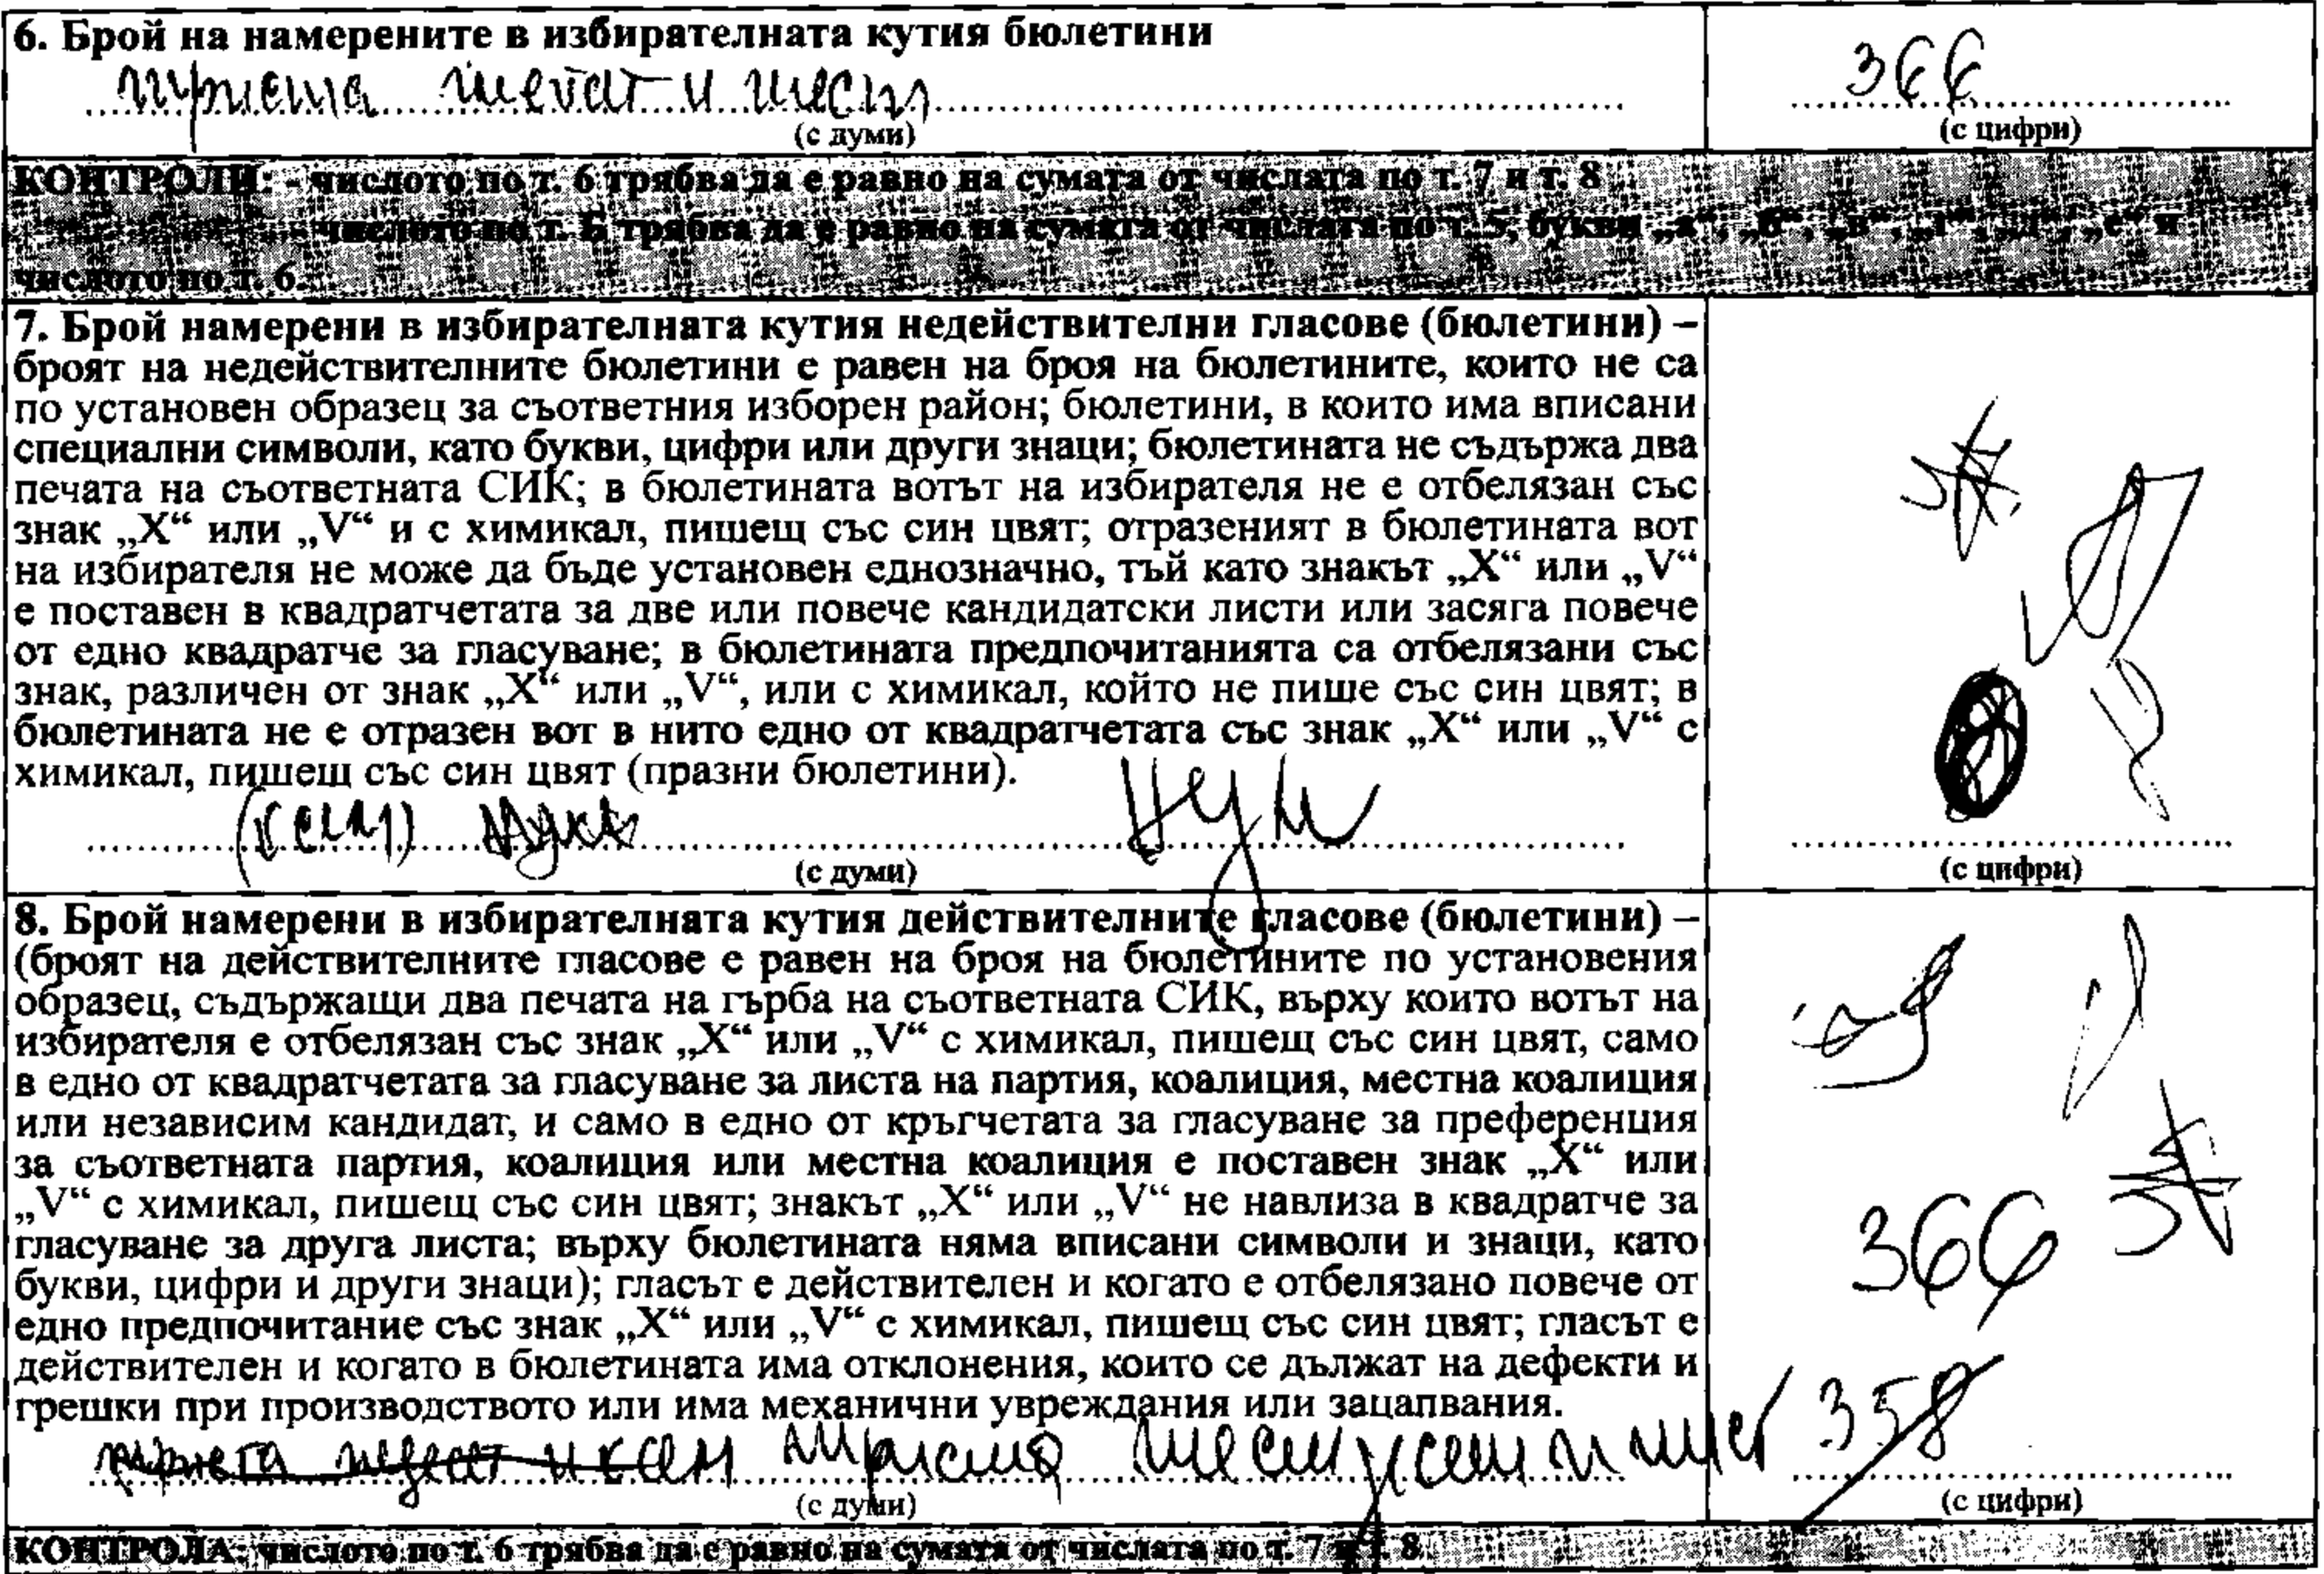 6. Брой на намерените в избирателната кутия бюлетини
триста шейсет и шест
366
(с думи)
(с цифри)
КОНТРОЛИ: - числото по т. 6 трябва да е равно на сумата от числата по т. 7 и т. 8
- числото по т. Б трябва да е равно на сумата от числата по т. 5, букви „а“, „б“, „в“, „г“, „д“, „е“ и
числото по т. 6.
7. Брой намерени в избирателната кутия недействителни гласове (бюлетини) –
броят на недействителните бюлетини е равен на броя на бюлетините, които не са
по установен образец за съответния изборен район; бюлетини, в които има вписани
специални символи, като букви, цифри или други знаци; бюлетината не съдържа два
печата на съответната СИК; в бюлетината вотът на избирателя не е отбелязан със
знак „X“ или „V“ и с химикал, пишещ със син цвят; отразеният в бюлетината вот
на избирателя не може да бъде установен еднозначно, тъй като знакът „X“ или „V“
е поставен в квадратчетата за две или повече кандидатски листи или засяга повече
от едно квадратче за гласуване; в бюлетината предпочитанията са отбелязани със
знак, различен от знак „X“ или „V“, или с химикал, който не пише със син цвят; в
бюлетината не е отразен вот в нито едно от квадратчетата със знак „X“ или „V“ с
химикал, пишещ със син цвят (празни бюлетини).
(с думи)
(с цифри)
8. Брой намерени в избирателната кутия действителните гласове (бюлетини) –
(броят на действителните гласове е равен на броя на бюлетините по установения
образец, съдържащи два печата на гърба на съответната СИК, върху които вотът на
избирателя е отбелязан със знак „X“ или „V“ с химикал, пишещ със син цвят, само
в едно от квадратчетата за гласуване за листа на партия, коалиция, местна коалиция
или независим кандидат, и само в едно от кръгчетата за гласуване за преференция
за съответната партия, коалиция или местна коалиция е поставен знак „X“ или
„V“ с химикал, пишещ със син цвят; знакът „X“ или „V“ не навлиза в квадратче за
гласуване за друга листа; върху бюлетината няма вписани символи и знаци, като
букви, цифри и други знаци); гласът е действителен и когато е отбелязано повече от
едно предпочитание със знак „X“ или „V“ с химикал, пишещ със син цвят; гласът е
действителен и когато в бюлетината има отклонения, които се дължат на дефекти и
грешки при производството или има механични увреждания или зацапвания.
366
триста шестдесет и шест
358
(с думи)
(с цифри)
КОНТРОЛА: числото по т. 6 трябва да е равно на сумата от числата по т. 7 и т. 8